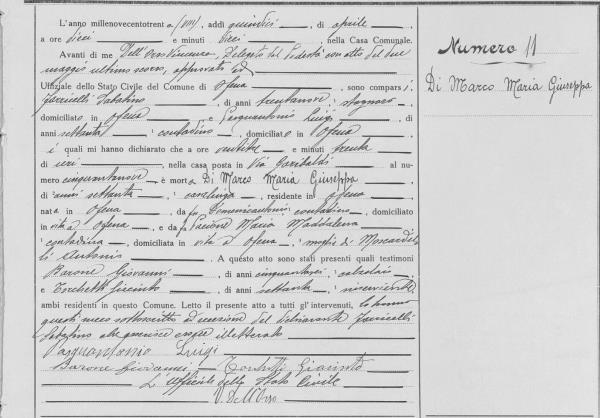 L'anno millenovecentotrenta (VIII), addì quindici, di aprile,
a ore dieci e minuti dieci, nella Casa Comunale.
Avanti di me Dell'Orso Vincenzo, Delegato del Podestà con atto del due
maggio ultimo scorso, approvato ed
Uffiziale dello Stato Civile del Comune di Ofena, sono comparsi
Sabatino, di anni trentanove, stagnaro
domiciliato in Ofena e Pasquantonio Luigi, di
anni settanta, contadino, domiciliato in Ofena,
i quali mi hanno dichiarato che a ore ventitre e minuti trenta
di ieri, nella casa posta in Via Garibaldi al nu-
mero cinquantanove è morta Di Marco Maria Giuseppa
di anni settanta, casalinga, residente in Ofena
nata in Ofena, da fu Domenicantonio, contadino, domiciliato
in vita a Ofena e da fu Maria Maddalena
contadina, domiciliata in vita a Ofena, moglie di
Antonio
A questo atto sono stati presenti quali testimoni
Barone Giovanni, di anni cinquantasei, calzolaio,
e Torchetti Giacinto, di anni settanta, inserviente
ambi residenti in questo Comune. Letto il presente atto a tutti gl'intervenuti, lo hanno
questi meco sottoscritto ad eccezione del dichiarante
Sabatino che asserisce essere illetterato
Pasquantonio Luigi
Barone Giovanni - Torchetti Giacinto
L'Ufficiale dello Stato Civile
V. Dell'Orso
Numero 11
Di Marco Maria Giuseppa